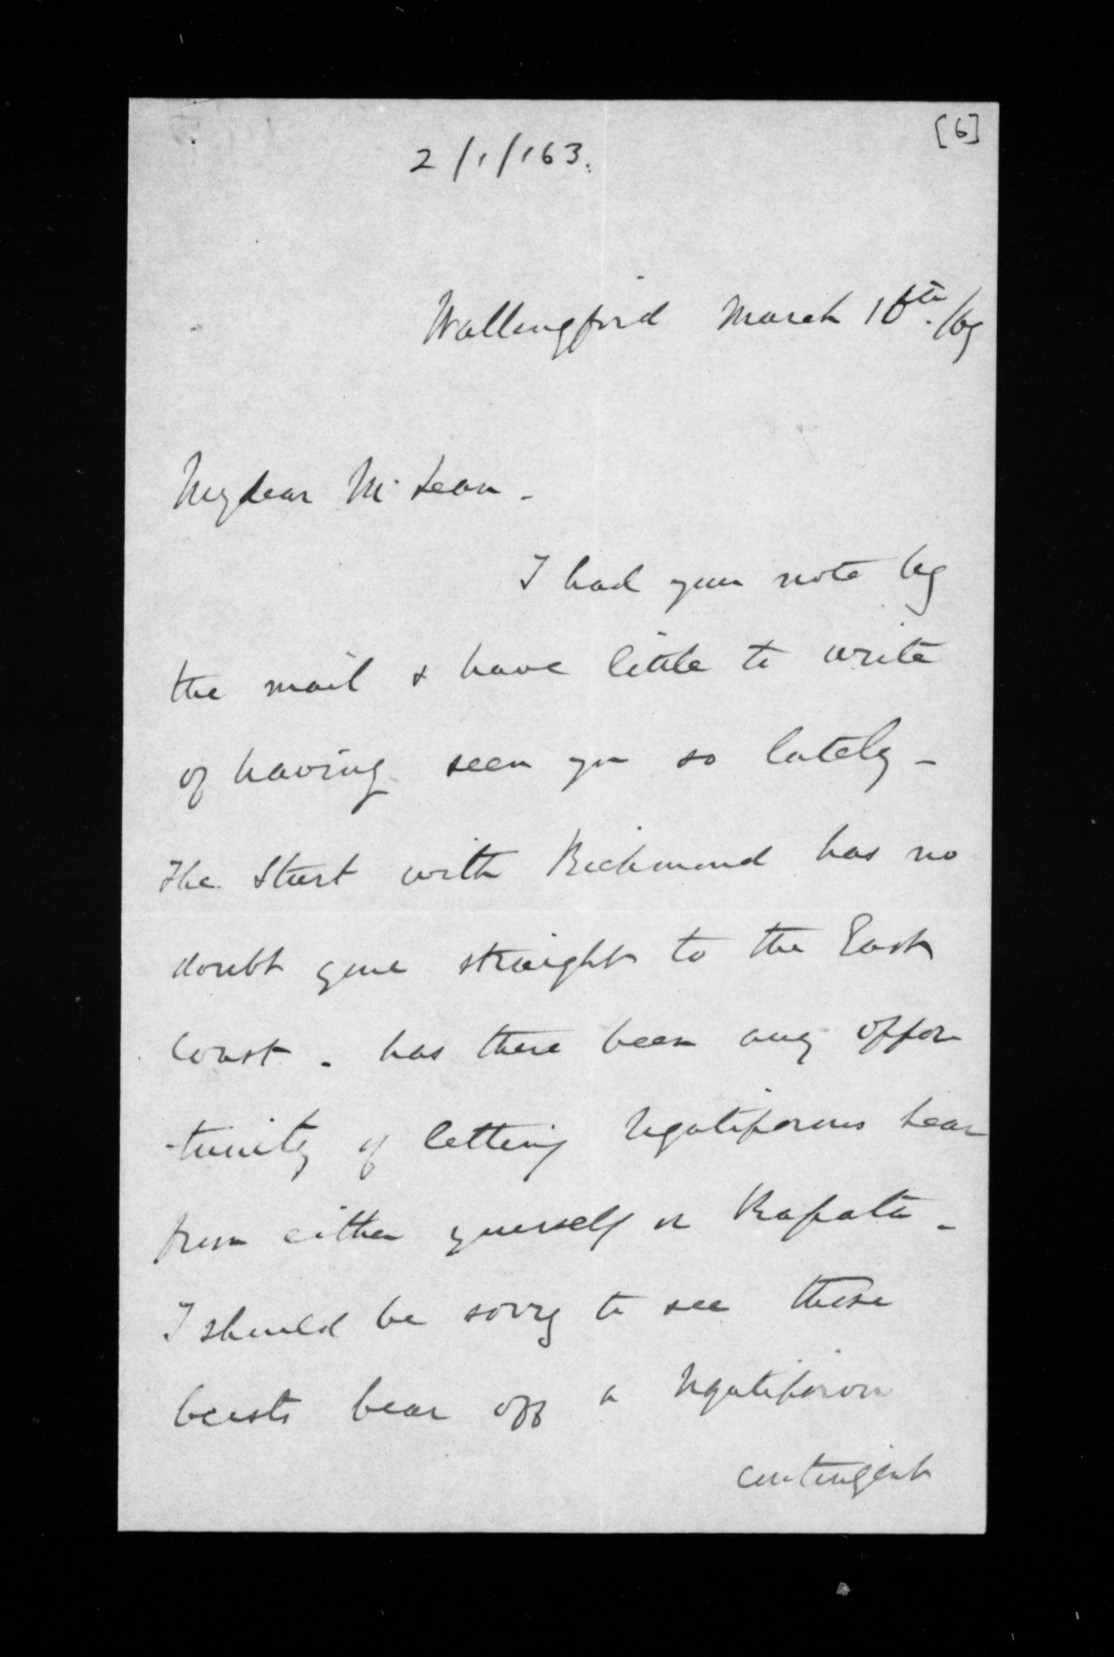 [6]
2/1/163.
Wallingford March 16th./69
My dear McLean -
I had your note by
the mail & have little to write
of having seen you so lately -
The Sturt with Richmond has no
doubt gone straight to the East
Coast - has there been any oppor
-tunity of letting Ngatiporous hear
from either yourself or Rapata -
I should be sorry to see these
beasts bear off a Ngatiporou
contingent